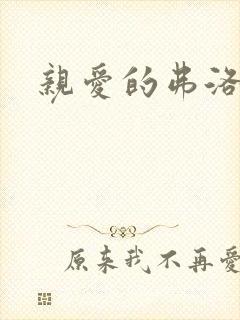 親愛的弗洛
原来我不再愛